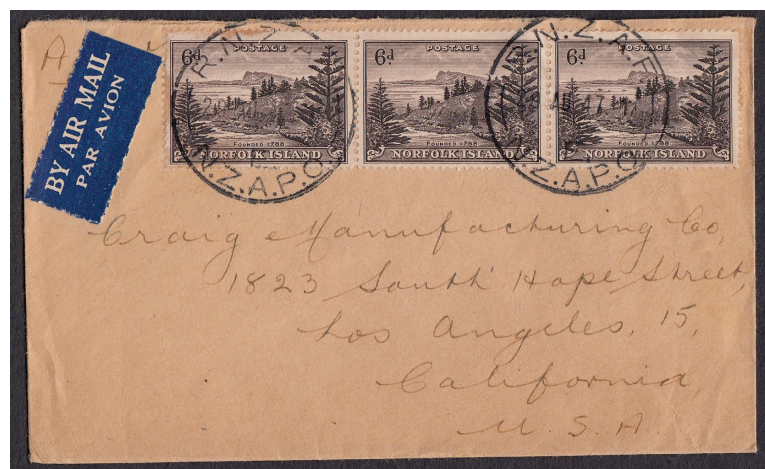 A
BY AIR MAIL
PAR AVION
6d POSTAGE
FOUNDED 1788
NORFOLK ISLAND
6d POSTAGE
FOUNDED 1788
NORFOLK ISLAND
6d POSTAGE
FOUNDED 1788
NORFOLK ISLAND
R.N.Z.A.F
N.Z.A.P.O.
R.N.Z.A.F
N.Z.A.P.O.
Craig Manufacturing Co,
1823 South Hope Street,
Los Angeles, 15,
California,
U. S. A.